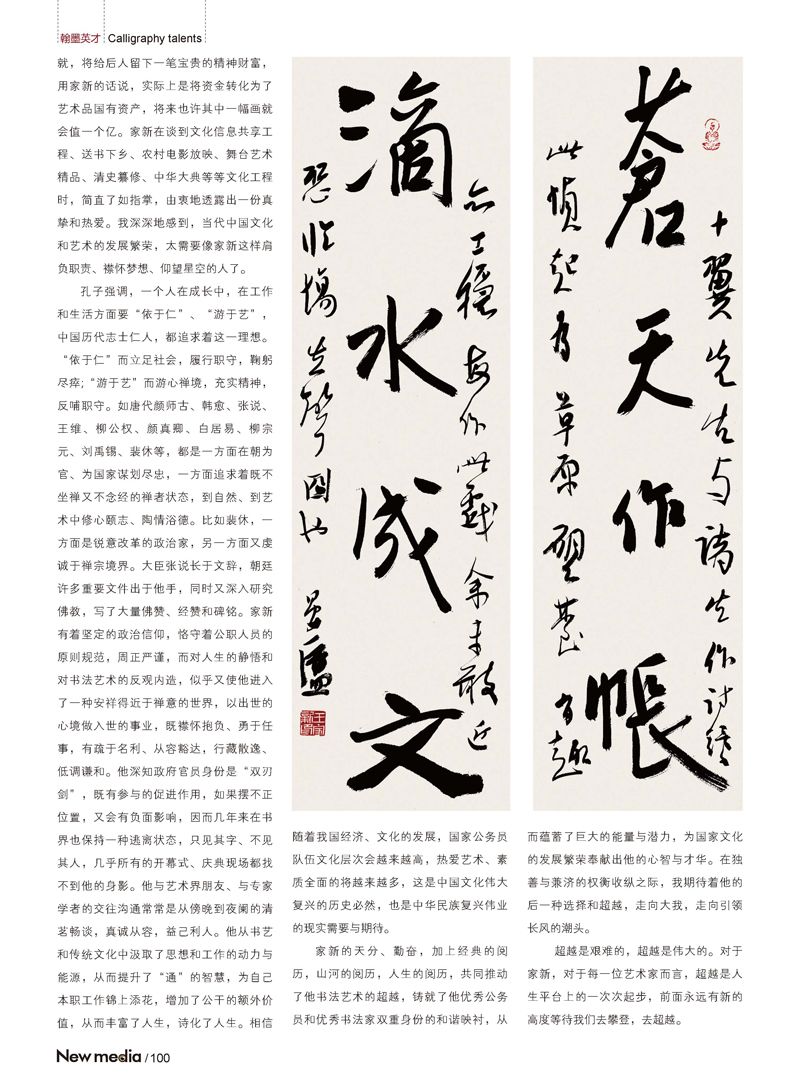 翰墨英才 Calligraphy talents
就，将给后人留下一笔宝贵的精神财富，
用家新的话说，实际上是将资金转化为了
艺术品国有资产，将来也许其中一幅画就
会值一个亿。家新在谈到文化信息共享工
程、送书下乡、农村电影放映、舞台艺术
精品、清史纂修、中华大典等等文化工程
时，简直了如指掌，由衷地透露出一份真
挚和热爱。我深深地感到，当代中国文化
和艺术的发展繁荣，太需要像家新这样肩
负职责、襟怀梦想、仰望星空的人了。
孔子强调，一个人在成长中，在工作
和生活方面要“依于仁”、“游于艺”，
中国历代志士仁人，都追求着这一理想。
“依于仁”而立足社会，履行职守，鞠躬
尽瘁;“游于艺”而游心禅境，充实精神，
反哺职守。如唐代颜师古、韩愈、张说、
王维、柳公权、颜真卿、白居易、柳宗
元、刘禹锡、裴休等，都是一方面在朝为
官、为国家谋划尽忠，一方面追求着既不
坐禅又不念经的禅者状态，到自然、到艺
术中修心颐志、陶情浴德。比如裴休，一
方面是锐意改革的政治家，另一方面又虔
诚于禅宗境界。大臣张说长于文辞，朝廷
许多重要文件出于他手，同时又深入研究
佛教，写了大量佛赞、经赞和碑铭。家新
有着坚定的政治信仰，恪守着公职人员的
原则规范，周正严谨，而对人生的静悟和
对书法艺术的反观内造，似乎又使他进入
了一种安祥得近于禅意的世界，以出世的
心境做入世的事业，既襟怀抱负、勇于任
事，有疏于名利、从容豁达，行藏散逸、
低调谦和。他深知政府官员身份是“双刃
剑”，既有参与的促进作用，如果摆不正
位置，又会有负面影响，因而几年来在书
界也保持一种逃离状态，只见其字、不见
其人，几乎所有的开幕式、庆典现场都找
不到他的身影。他与艺术界朋友、与专家
学者的交往沟通常常是从傍晚到夜阑的清
茗畅谈，真诚从容，益己利人。他从书艺
和传统文化中汲取了思想和工作的动力与
能源，从而提升了“通”的智慧，为自己
本职工作锦上添花，增加了公干的额外价
值，从而丰富了人生，诗化了人生。相信
苍天作帐
十翼先生与诸生作诗续
此
起
草原
有趣
滴水成文
亦工稳
故作此戏余未敢近
恐临场
王家新
随着我国经济、文化的发展，国家公务员
队伍文化层次会越来越高，热爱艺术、素
质全面的将越来越多，这是中国文化伟大
复兴的历史必然，也是中华民族复兴伟业
的现实需要与期待。
家新的天分、勤奋，加上经典的阅
历，山河的阅历，人生的阅历，共同推动
了他书法艺术的超越，铸就了他优秀公务
员和优秀书法家双重身份的和谐映衬，从
而蕴蓄了巨大的能量与潜力，为国家文化
的发展繁荣奉献出他的心智与才华。在独
善与兼济的权衡收纵之际，我期待着他的
后一种选择和超越，走向大我，走向引领
长风的潮头。
超越是艰难的，超越是伟大的。对于
家新，对于每一位艺术家而言，超越是人
生平台上的一次次起步，前面永远有新的
高度等待我们去攀登，去超越。
New media / 100